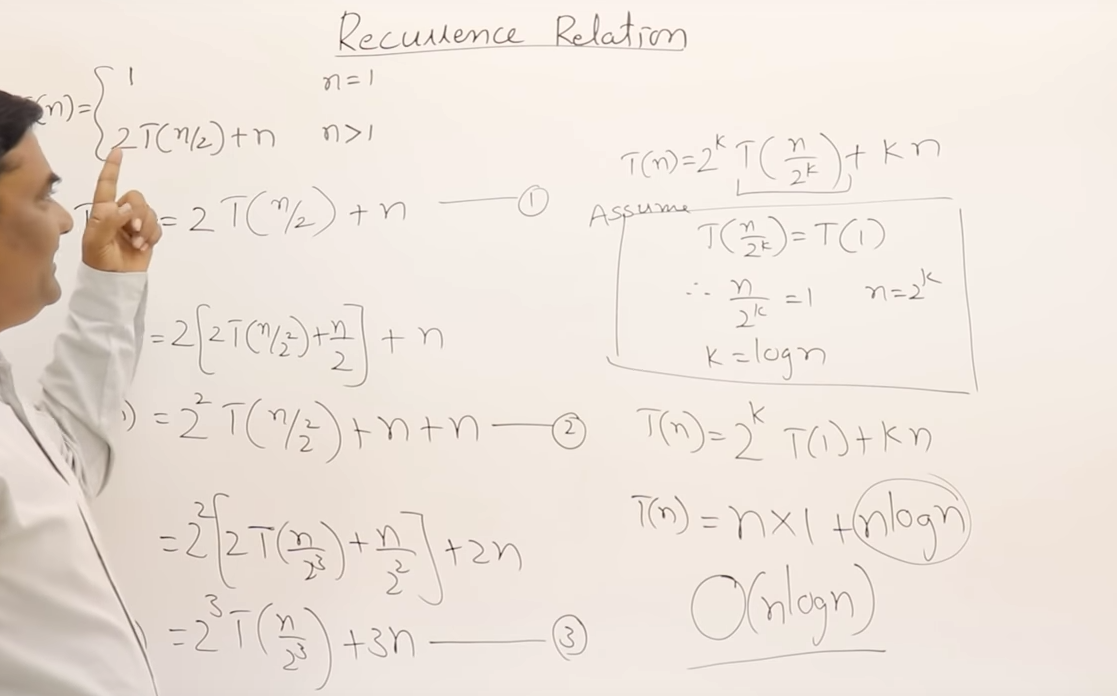 Recurrence Relation
(n)= { 1 n=1
2T(n/2)+n n>1
= 2 T(n/2) + n ——— ①
= 2[2T(n/2²)+n/2] + n
) = 2² T(n/2²)+n+n —— ②
= 2²[2T(n/2³)+n/2²]+2n
= 2³ T(n/2³) +3n ——— ③
T(n)=2ᵏ T(n/2ᵏ)+ kn
Assume
T(n/2ᵏ)=T(1)
∴ n/2ᵏ =1 n=2ᵏ
k=logn
T(n)=2ᵏ T(1)+kn
T(n) = n×1 +nlogn
O(nlogn)